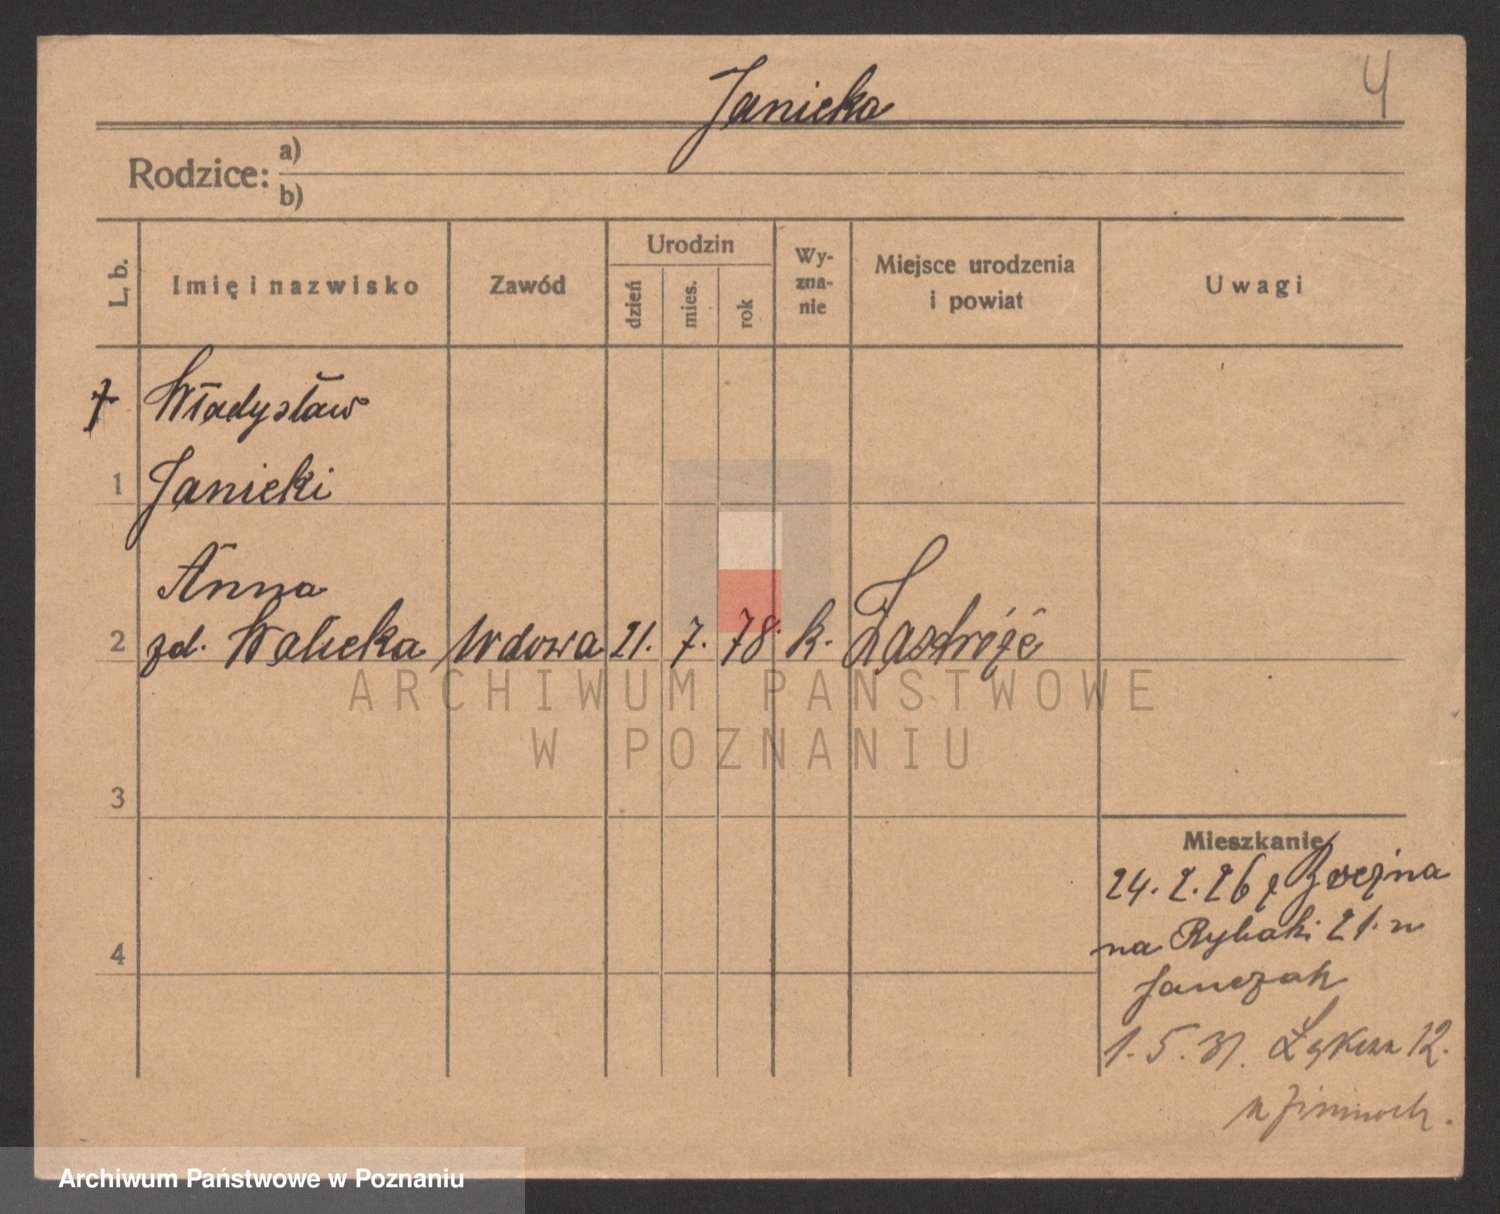 Janicka
4
Rodzice:
a)
b)
L. b.
Imię i nazwisko
Zawód
Urodzin
dzień
mies.
rok
Wy-
zna-
nie
Miejsce urodzenia
i powiat
Uwagi
Władysław
1 Janicki
Anna
2 zd. Walicka Wdowa 21. 7. 78. k. Zazdróść
3
4
Mieszkanie
24. 2. 26 z
na Rybaki 21. u
Janczak
1. 5. 31. 12.
u
ARCHIWUM PAŃSTWOWE
W POZNANIU
Archiwum Państwowe w Poznaniu